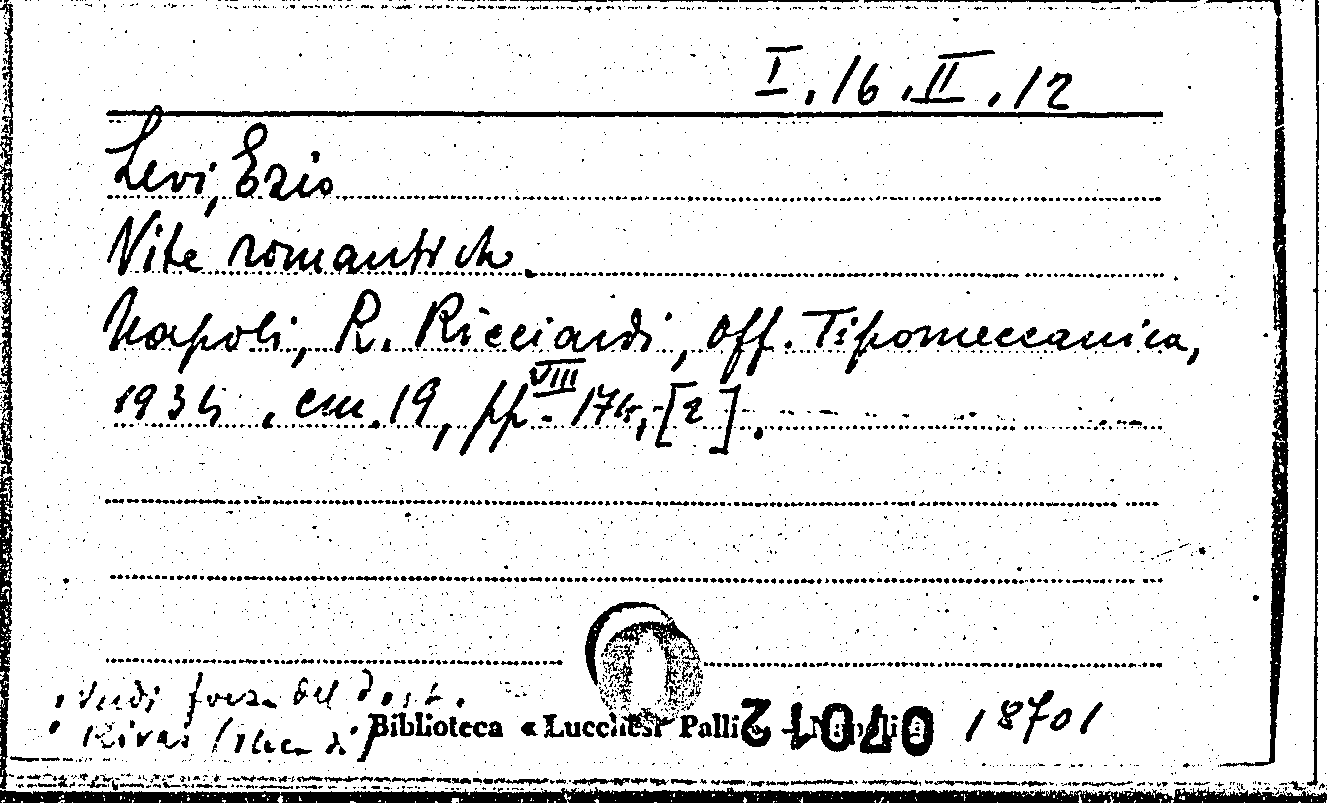 I.16.II.12
Levi, Ezio
Vite romantiche.
Napoli, R. Ricciardi, Off. Tipomeccanica,
1934, cm. 19, pp. VIII-174, [2].
Verdi forza del dest.
Rivas (duca di)
Biblioteca « Lucchesi Palli » - Napoli
18701